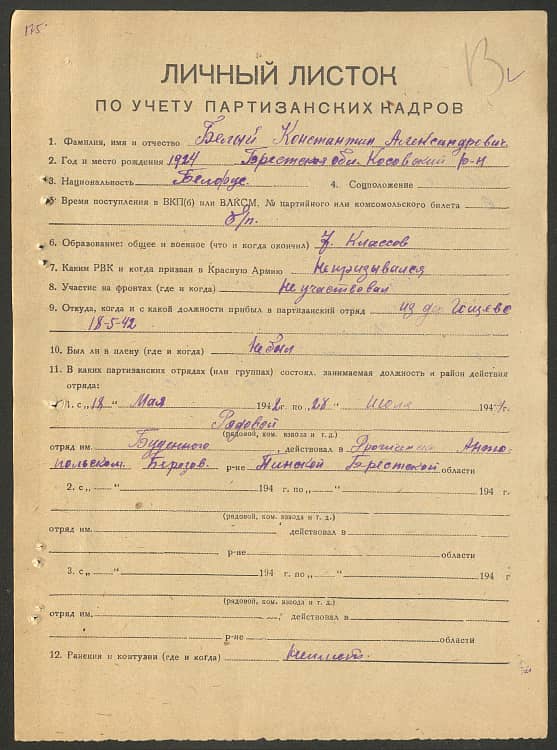 175.
ЛИЧНЫЙ ЛИСТОК
ПО УЧЕТУ ПАРТИЗАНСКИХ КАДРОВ
1. Фамилия, имя и отчество Белый Константин Александрович.
2. Год и место рождения 1924 Брестская обл. Косовский р-н
3. Национальность Белорус. 4. Соцположение
5. Время поступления в ВКП(б) или ВЛКСМ, № партийного или комсомольского билета
б/п.
6. Образование: общее и военное (что и когда окончил) 7. Классов
7. Каким РВК и когда призван в Красную Армию Не призывался
8. Участие на фронтах (где и когда) Не участвовал
9. Откуда, когда и с какой должности прибыл в партизанский отряд из дер. Гощево
18-5-42
10. Был ли в плену (где и когда) Не был
11. В каких партизанских отрядах (или группах) состоял, занимаемая должность и район действия
отряда:
1. с „18“ Мая 1942 г. по „28“ Июля 1944 г.
Рядовой
(рядовой, ком. взвода и т. д.)
отряд им. Буденного, действовал в Дрогичин. Анто-
польском. Березов. р-не Пинской Брестской области
2. с „ “ 194 г. по „ “ 194 г.
(рядовой, ком. взвода и т. д.)
отряд им. действовал в
р-не области
3. с „ “ 194 г. по „ “ 194 г
(рядовой, ком. взвода и т. д.)
отряд им. , действовал в
р-не области
12. Ранения и контузии (где и когда) Не имеет.